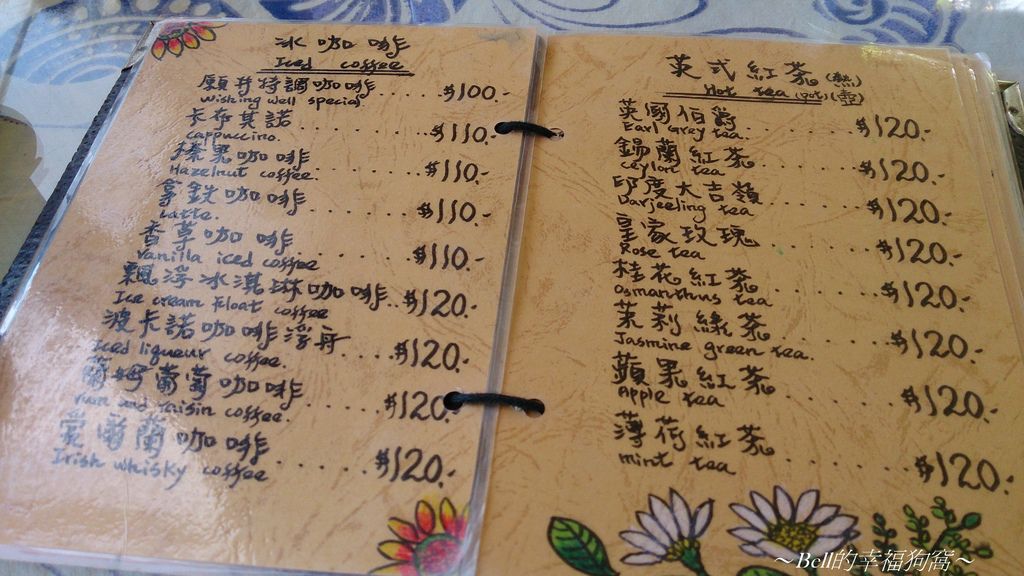 冰咖啡
Iced coffee
願井特調咖啡......$100.-
Wishing well special
卡布其諾......$110.-
cappuccino.
榛果咖啡......$110.-
Hazelnut coffee.
拿鉄咖啡......$110.-
Latte.
香草咖啡......$110.-
Vanilla iced coffee
飄浮冰淇琳咖啡..$120.-
Ice cream float coffee
波卡諾咖啡浮舟..$120.-
Iced liqueur coffee.
蘭姆葡萄咖啡......$120.-
rum and raisin coffee.
愛爾蘭咖啡......$120.-
Irish whisky coffee
英式紅茶(熱)
Hot tea (pot)(壺)
英國伯爵......$120.-
Earl Grey tea
錫蘭紅茶......$120.-
Ceylon tea
印度大吉嶺......$120.-
Darjeeling tea
皇家玫瑰......$120.-
Rose tea
桂花紅茶......$120.-
Osmanthus tea
茉莉綠茶......$120.-
Jasmine green tea.
蘋果紅茶......$120.-
Apple tea
薄荷紅茶......$120.-
mint tea
～Bell的幸福狗窩～